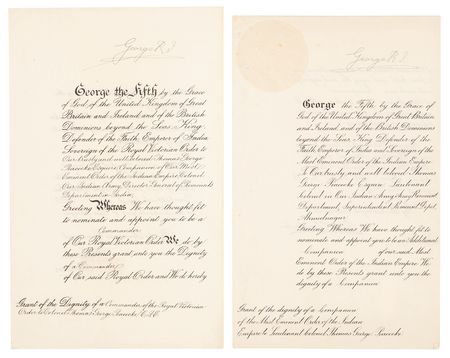 George R.I.
George the Fifth by the Grace
of God, of the United Kingdom of Great
Britain and Ireland and of the British
Dominions beyond the Seas King,
Defender of the Faith, Emperor of India
Sovereign of the Royal Victorian Order to
Our trusty and well beloved Thomas George
Peacocke Esquire Companion of Our Most
Eminent Order of the Indian Empire Colonel
Our Indian Army Director General of Remounts
Department in India
Greeting Whereas We have thought fit
to nominate and appoint you to be a
Commander
of Our Royal Victorian Order We do by
these Presents grant unto you the Dignity
of a Commander
of Our said Royal Order and We do hereby
Grant of the Dignity of a Commander of the Royal Victorian
Order to Colonel Thomas George Peacocke, C.I.E.
George R.I.
George the Fifth by the Grace of
God of the United Kingdom of Great Britain
and Ireland and of the British Dominions
beyond the Seas King, Defender of the
Faith, Emperor of India and Sovereign of the
Most Eminent Order of the Indian Empire
To Our trusty and well beloved Thomas
George Peacocke Esquire Lieutenant
Colonel in Our Indian Army Army Remount
Department Superintendent Remount Depot,
Ahmednagar
Greeting Whereas We have thought fit to
nominate and appoint you to be an Additional
Companion of our said Most
Eminent Order of the Indian Empire We
do by these Presents grant unto you the
dignity of a Companion
Grant of the dignity of a Companion
of the Most Eminent Order of the Indian
Empire to Lieutenant Colonel Thomas George Peacocke